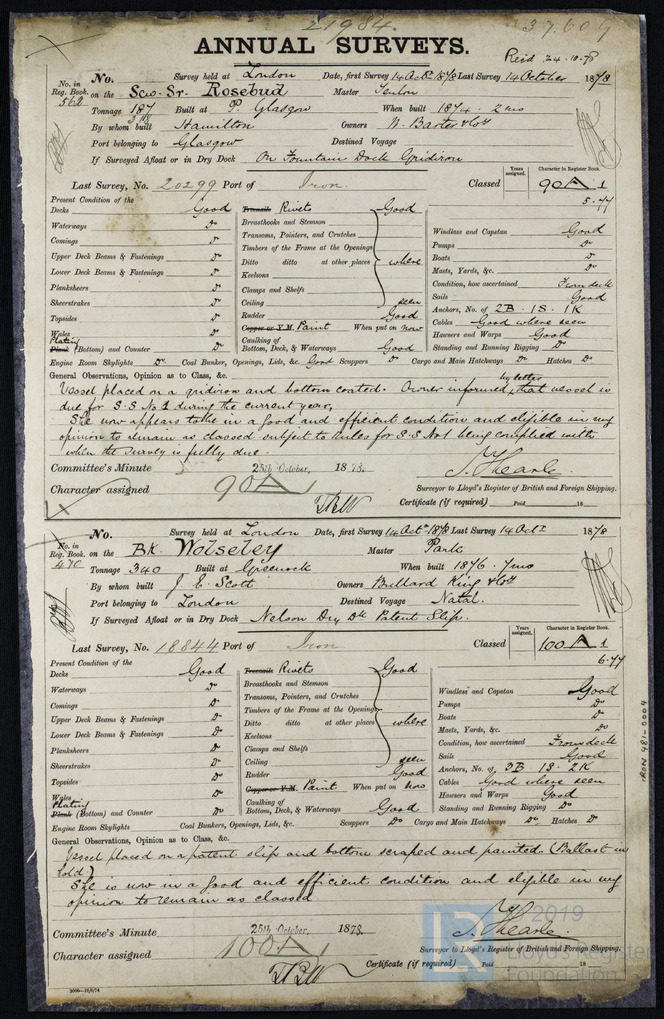 21984. 37.609
ANNUAL SURVEYS.
Recd 24.10.78
No. Survey held at London Date, first Survey 14 Octr 1878 Last Survey 14 October 1878
No. in Reg. Book. 562 on the Scw. Sr. Rosebud Master
Tonnage 187 Built at P. Glasgow When built 1874. 2mo
By whom built Hamilton Owners W. Baxter & Co
Port belonging to Glasgow Destined Voyage
If Surveyed Afloat or in Dry Dock On Fountain Dock Gridiron
Years assigned. Character in Register Book.
Last Survey, No. 20299 Port of Iron. Classed 90A1
5.77
Present Condition of the
Decks Good
Waterways Do
Comings Do
Upper Deck Beams & Fastenings Do
Lower Deck Beams & Fastenings Do
Planksheers Do
Sheerstrakes Do
Topsides Do
Wales Do
Plating
Plank (Bottom) and Counter Do
Treenails Rivets Good
Breasthooks and Stemson
Transoms, Pointers, and Crutches
Timbers of the Frame at the Openings
Ditto ditto at other places where
Keelsons
Clamps and Shelfs
Ceiling seen
Rudder Good
Copper or Y.M. Paint When put on now
Caulking of
Bottom, Deck, & Waterways Good
Windlass and Capstan Good
Pumps Do
Boats Do
Masts, Yards, &c. Do
Condition, how ascertained From deck
Sails Good
Anchors, No. of 2B. 1S. 1K
Cables Good where seen
Hawsers and Warps Good
Standing and Running Rigging Do
Engine Room Skylights Do Coal Bunker, Openings, Lids, &c. Good Scuppers Do Cargo and Main Hatchways Do Hatches Do
General Observations, Opinion as to Class, &c.
Vessel placed on a gridiron and bottom coated. Owner informed by letter that vessel is
due for S.S No 1 during the current year,
She now appears to be in a good and efficient condition and eligible in my
opinion to remain as classed subject to rules for S.S No1 being complied with
when the survey is fully due.
Committee's Minute 25th October, 1878.
Character assigned 90A
Surveyor to Lloyd's Register of British and Foreign Shipping.
Certificate (if required) Paid 18
No. Survey held at London Date, first Survey 14 Octr 1878 Last Survey 14 Octr 1878
No. in Reg. Book. 470 on the Bk. Wolseley Master Park
Tonnage 340 Built at Greenock When built 1876. 7mo
By whom built J. E. Scott Owners Bullard King & Co
Port belonging to London Destined Voyage Natal.
If Surveyed Afloat or in Dry Dock Nelson Dry Dk Patent Slip.
Years assigned. Character in Register Book.
Last Survey, No. 18844 Port of Iron Classed 100A1
6.77
Present Condition of the
Decks Good
Waterways Do
Comings Do
Upper Deck Beams & Fastenings Do
Lower Deck Beams & Fastenings Do
Planksheers Do
Sheerstrakes Do
Topsides Do
Wales Do
Plating
Plank (Bottom) and Counter Do
Treenails Rivets Good
Breasthooks and Stemson
Transoms, Pointers, and Crutches
Timbers of the Frame at the Openings
Ditto ditto at other places where
Keelsons
Clamps and Shelfs
Ceiling seen
Rudder Good
Copper or Y.M. Paint When put on now
Caulking of
Bottom, Deck, & Waterways Good
Windlass and Capstan Good
Pumps Do
Boats Do
Masts, Yards, &c. Do
Condition, how ascertained From deck
Sails Good
Anchors, No. of 3B 1S. 2K
Cables Good where seen
Hawsers and Warps Good
Standing and Running Rigging Do
Engine Room Skylights Coal Bunkers, Openings, Lids, &c. Scuppers Do Cargo and Main Hatchways Do, Hatches Do
General Observations, Opinion as to Class, &c.
Vessel placed on a patent slip and bottom scraped and painted (Ballast in
hold)
She is now in a good and efficient condition and eligible in my
opinion to remain as classed
Committee's Minute 25th October, 1878.
Character assigned 100A
Surveyor to Lloyd's Register of British and Foreign Shipping.
Certificate (if required) Paid 18
IRON 481-0004
2019
Lloyd's Register
Foundation